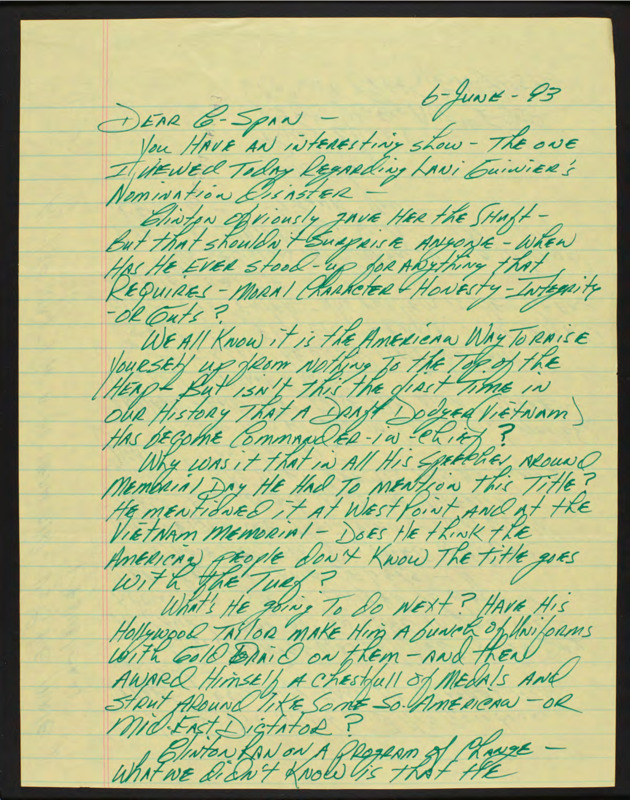 6-June-93
Dear C-Span -
You have an interesting show - the one
I viewed today regarding Lani Guinier's
nomination disaster -
Clinton obviously gave her the shaft -
But that shouldn't surprise anyone - when
has he ever stood-up for anything that
requires - moral character - honesty - integrity
-or guts?
We all know it is the American way to raise
yourself up from nothing to the top of the
heap - But isn't this the first time in
our history that a draft dodger (Vietnam)
has become Commander-in-Chief?
Why was it that in all his speeches around
Memorial Day he had to mention this title?
He mentioned it at West Point and at the
Vietnam Memorial - Does he think the
American people don't know the title goes
with the turf?
What's he going to do next? Have his
Hollywood taylor make him a bunch of uniforms
with gold braid on them - and then
award himself a chestfull of medals and
strut around like some So. American - or
Mid-East dictator?
Clinton ran on a program of change -
what we didn't know is that he